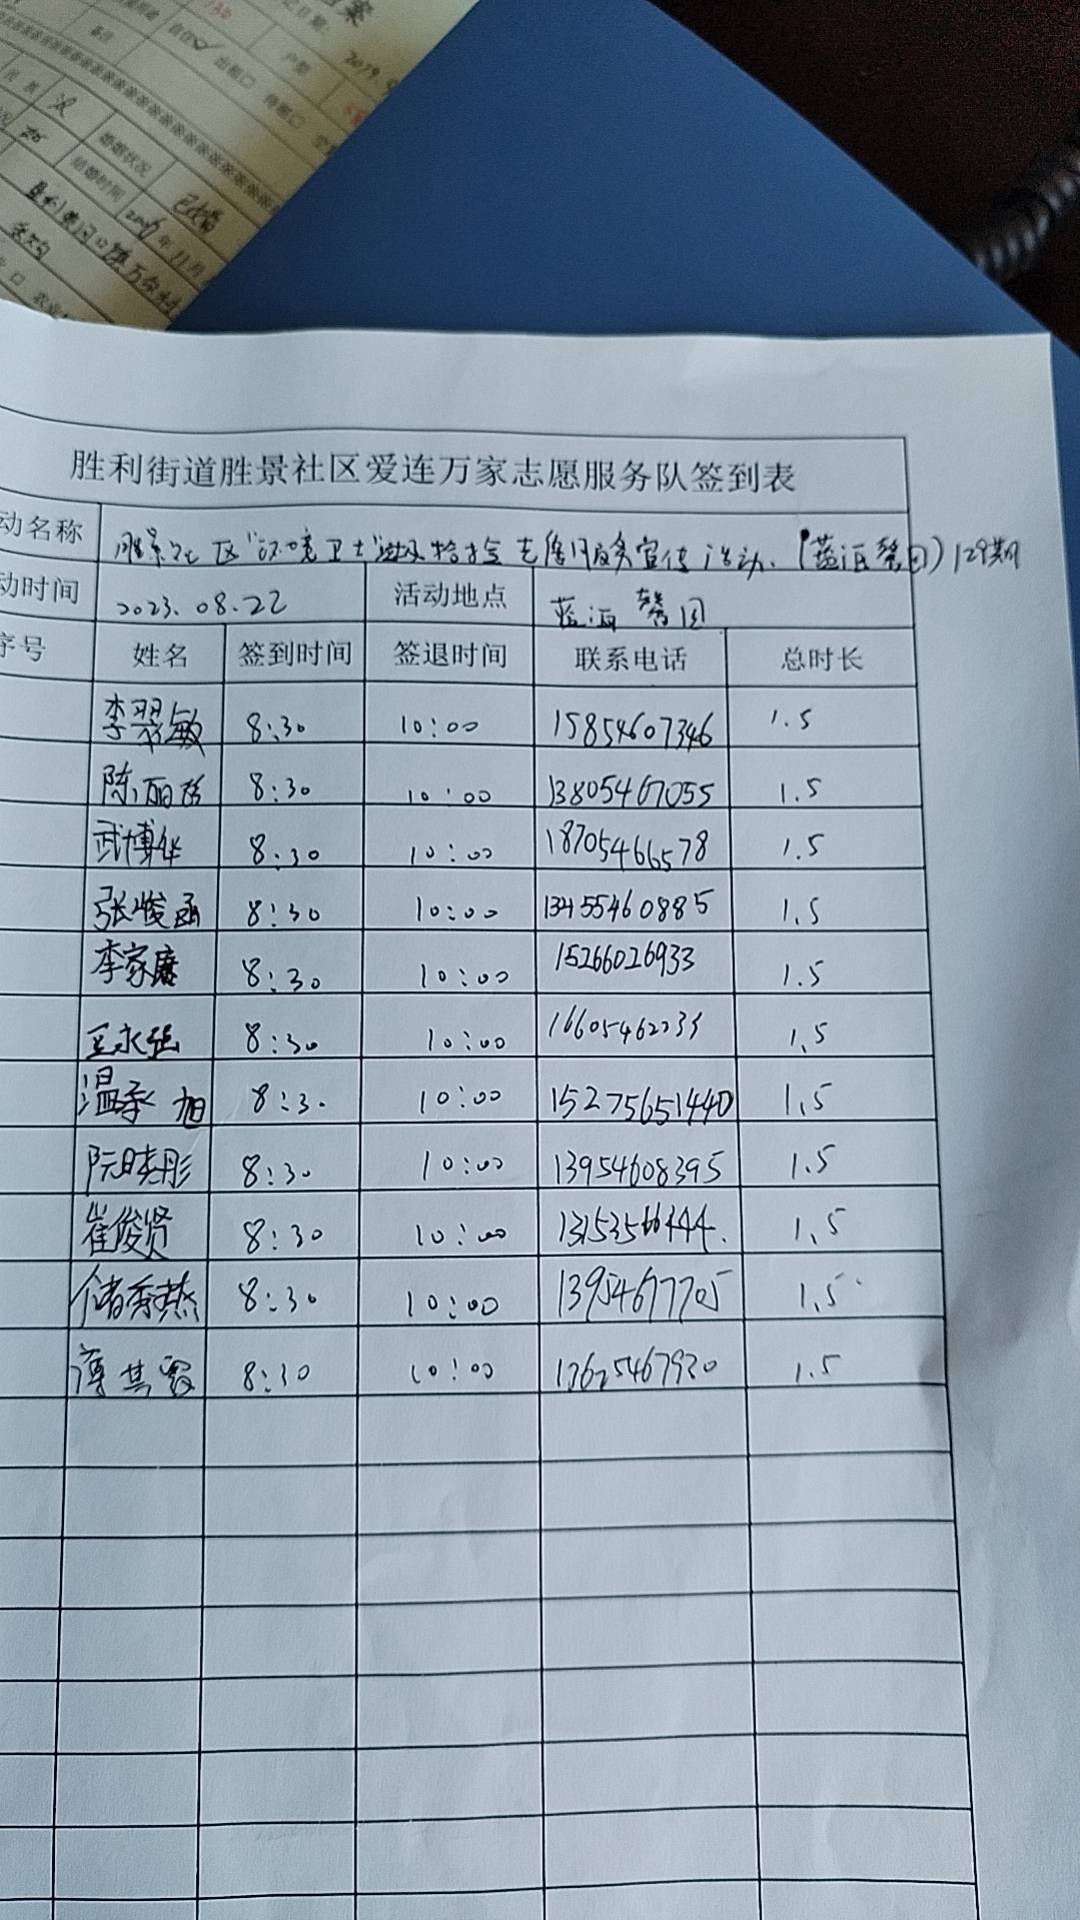 2019
婚姻状况 已婚
结婚时间 2009年11月
胜利街道胜景社区爱连万家志愿服务队签到表
动名称 胜景社区"环境卫士"垃圾捡拾志愿服务宣传活动.(蓝海馨园)129期
动时间 2023.08.22 活动地点 蓝海馨园
序号 姓名 签到时间 签退时间 联系电话 总时长
李翠敏 8:30 10:00 15854607346 1.5
陈丽 8:30 10:00 13805467055 1.5
武博华 8:30 10:00 18705466578 1.5
张峻函 8:30 10:00 13455460885 1.5
李家赓 8:30 10:00 15266026933 1.5
王永强 8:30 10:00 1.5
温承旭 8:30 10:00 15275651440 1.5
阮晓彤 8:30 10:00 13954608395 1.5
崔俊贤 8:30 10:00 13153566444. 1.5
储秀燕 8:30 10:00 13954677705 1.5
8:30 10:00 13625467920 1.5